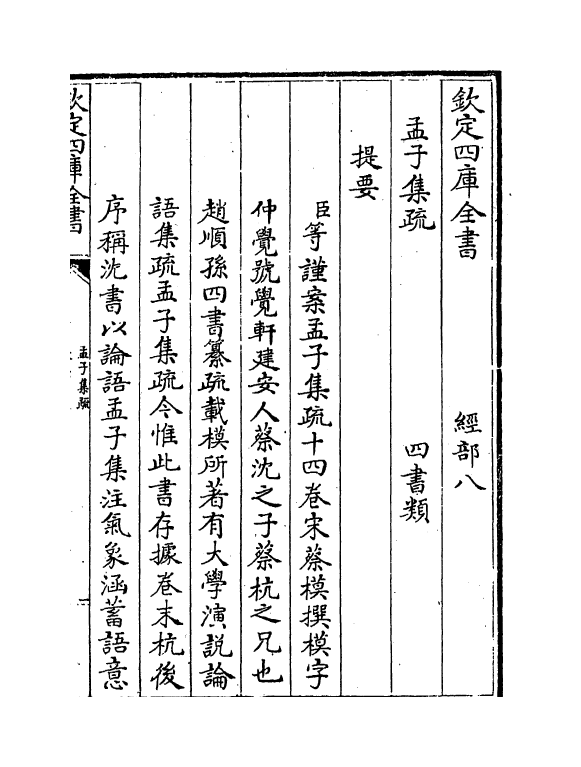 欽定四庫全書　經部八
孟子集疏　四書類
提要
臣等謹案孟子集疏十四卷宋蔡模撰模字
仲覺號覺軒建安人蔡沈之子蔡杭之兄也
趙順孫四書纂疏載模所著有大學演説論
語集疏孟子集疏今惟此書存據卷末杭後
序稱沈書以論語孟子集注氣象涵蓄語意
欽定四庫全書
孟子集疏
一